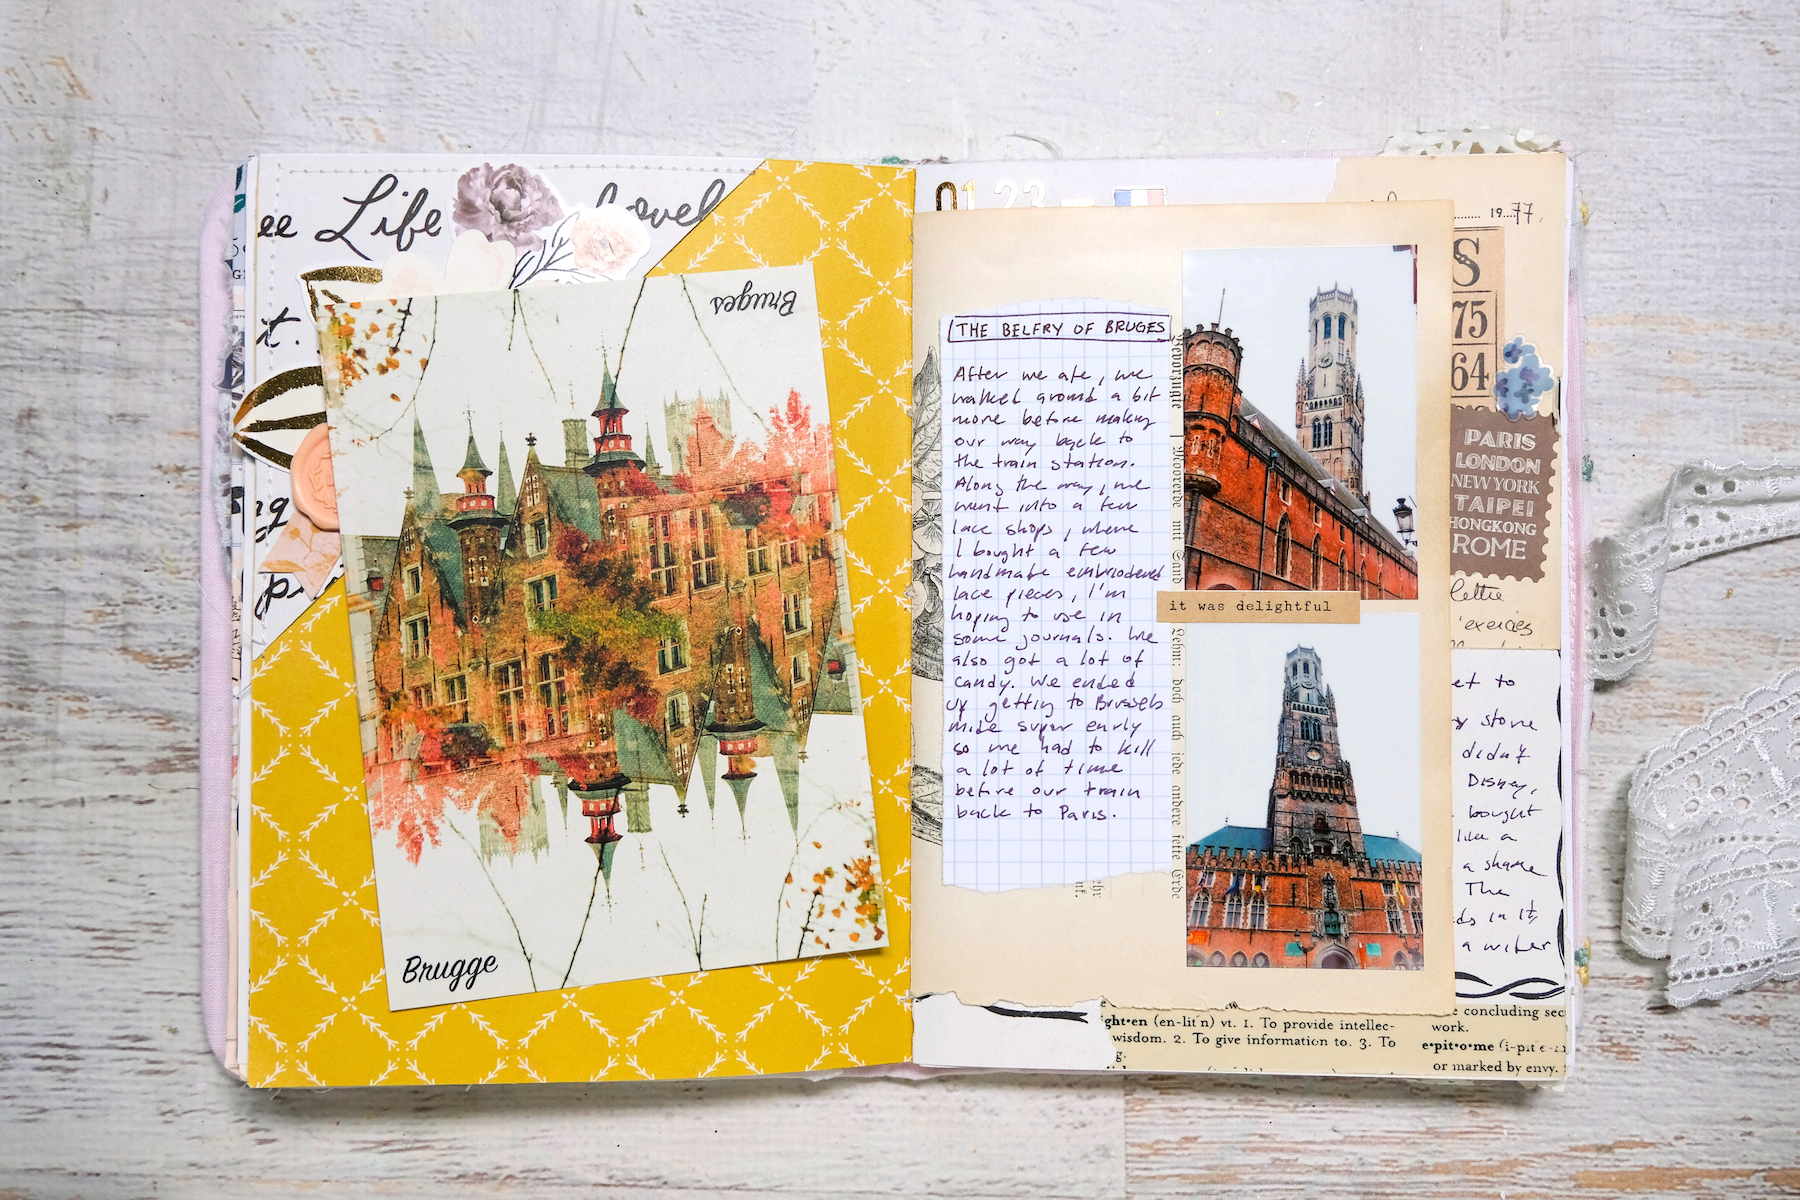 ee Life
Lovel
t.
ng
Bruges
Brugge
01.23
19...77.
S
75
64
PARIS
LONDON
NEW YORK
TAIPEI
HONGKONG
ROME
THE BELFRY OF BRUGES
After we ate, we
walked around a bit
more before making
our way back to
the train station.
Along the way, we
went into a few
lace shops, where
I bought a few
handmade embriodered
lace pieces, I'm
hoping to use in
some journals. We
also got a lot of
candy. We ended
up getting to Brussels
midi super early
so we had to kill
a lot of time
before our train
back to Paris.
it was delightful
lettie
'exercies
et to
y store
didn't
Disney,
bought
like a
a share
The
ds in it,
a wiker
ght•en (en-lit′n) vt. 1. To provide intellec-
wisdom. 2. To give information to. 3. To
g.
e concluding sec
work.
e•pit•o•me (i-pit
or marked by envy.